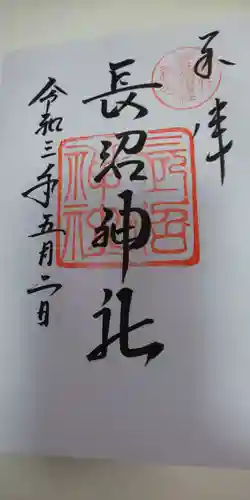 奉拝
長沼神社
令和三年五月二日
長沼神社